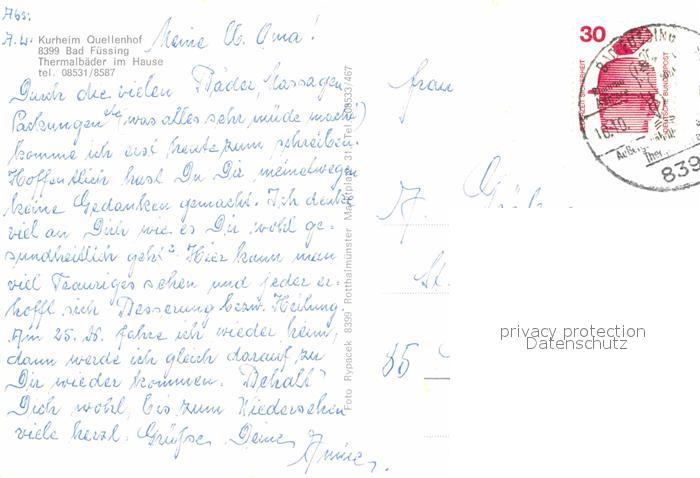 Abs:
A. W.
Kurheim Quellenhof
8399 Bad Füssing
Thermalbäder im Hause
tel. 08531/8587
Meine lb. Oma!
Durch die vielen Bäder, Massagen
Packungen etc (was alles sehr müde macht)
komme ich erst heute zum schreiben.
Hoffentlich hast Du Dir meinetwegen
keine Gedanken gemacht. Ich denke
viel an Dich wie es Dir wohl ge=
sundheitlich geht? Hier kann man
viel Trauriges sehen und jeder er=
hofft sich Besserung bezw. Heilung.
Am 25. fahre ich wieder heim,
dann werde ich gleich darauf zu
Dir wieder kommen. Behalt
Dich wohl, bis zum Wiedersehen
viele herzl. Grüße Deine
Foto Rypacek 8399 Rotthalmünster Marktplatz 31 Tel. 08533/467
Frau
A.
St.
85
30
DEUTSCHE BUNDESPOST
BAD FÜSSING
839
privacy protection
Datenschutz